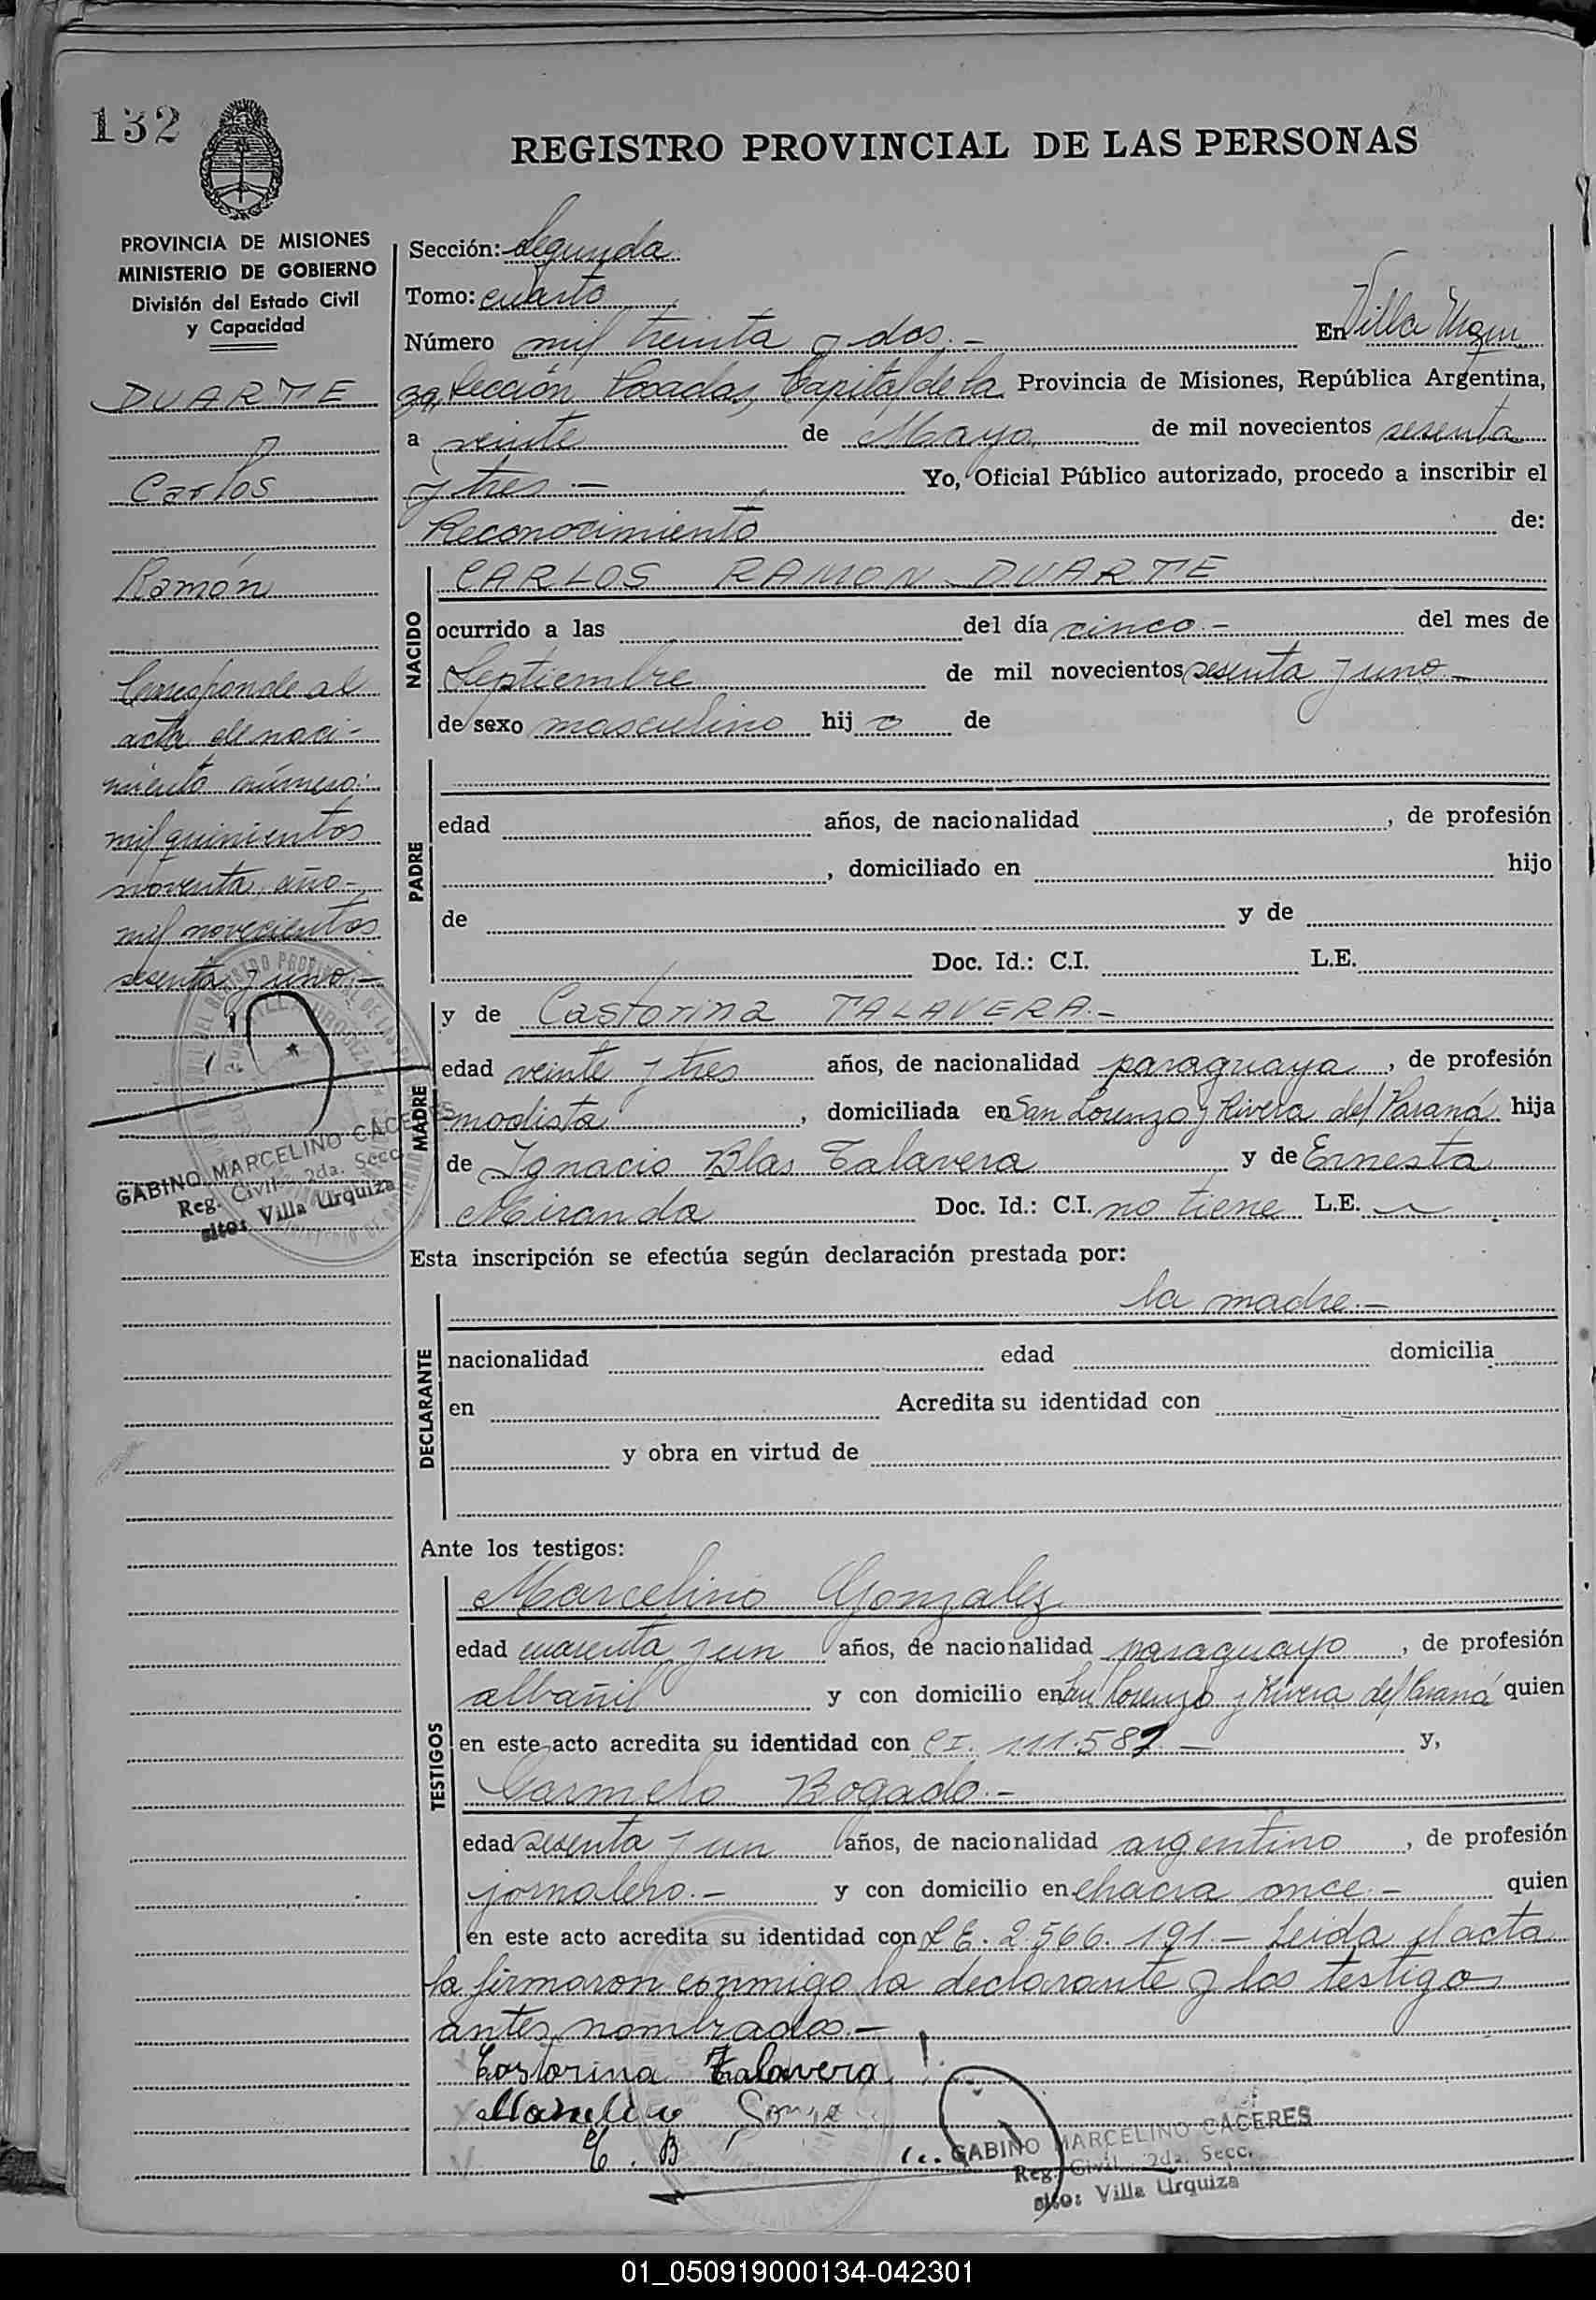 132
REGISTRO PROVINCIAL DE LAS PERSONAS
PROVINCIA DE MISIONES
MINISTERIO DE GOBIERNO
División del Estado Civil
y Capacidad
DUARTE
Carlos
Ramón
Corresponde al
acta de naci-
miento número:
mil quinientos
noventa año-
mil novecientos
sesenta y uno.-
GABINO MARCELINO CACERES
Reg. Civil 2da. Secc.
sito: Villa Urquiza
Sección: Segunda
Tomo: cuarto
Número mil treinta y dos.- En Villa Urqui
za, Sección Posadas, Capital de la Provincia de Misiones, República Argentina,
a veinte de Mayo de mil novecientos sesenta
y tres.- Yo, Oficial Público autorizado, procedo a inscribir el
Reconocimiento de:
NACIDO
CARLOS RAMON DUARTE
ocurrido a las del día cinco.- del mes de
Septiembre de mil novecientos sesenta y uno.-
de sexo masculino hij o de
PADRE
edad años, de nacionalidad , de profesión
, domiciliado en hijo
de y de
Doc. Id.: C.I. L.E.
MADRE
y de Castorina TALAVERA.-
edad veinte y tres años, de nacionalidad paraguaya , de profesión
modista , domiciliada en San Lorenzo y Rivera del Paraná hija
de Ignacio Blas Talavera y de Ernesta
Miranda Doc. Id.: C.I. no tiene L.E.
Esta inscripción se efectúa según declaración prestada por:
DECLARANTE
la madre.-
nacionalidad edad domicilia
en Acredita su identidad con
y obra en virtud de
Ante los testigos:
TESTIGOS
Marcelino Gonzalez
edad cuarenta y un años, de nacionalidad paraguayo , de profesión
albañil y con domicilio en San Lorenzo y Rivera del Paraná quien
en este acto acredita su identidad con CI. 111.582.- y,
Carmelo Bogado.-
edad sesenta y un años, de nacionalidad argentino , de profesión
jornalero.- y con domicilio en chacra once.- quien
en este acto acredita su identidad con L E. 2.566.191.- Leida el acta
la firmaron conmigo la declarante y los testigos
antes nombrados.-
Castorina Talavera
C. B
GABINO MARCELINO CACERES
Reg. Civil 2da. Secc.
sito: Villa Urquiza
01_050919000134-042301